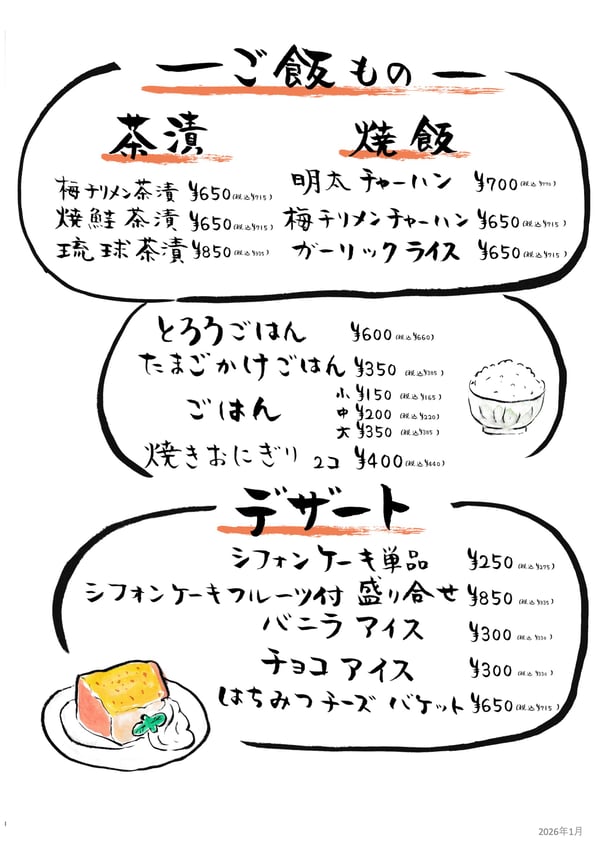 ーご飯ものー
茶漬
梅チリメン茶漬 ¥650(税込¥715)
焼鮭茶漬 ¥650(税込¥715)
琉球茶漬 ¥850(税込¥935)
焼飯
明太チャーハン ¥700(税込¥770)
梅チリメンチャーハン ¥650(税込¥715)
ガーリックライス ¥650(税込¥715)
とろろごはん ¥600(税込¥660)
たまごかけごはん ¥350(税込¥385)
ごはん
小 ¥150(税込¥165)
中 ¥200(税込¥220)
大 ¥350(税込¥385)
焼きおにぎり 2コ ¥400(税込¥440)
デザート
シフォンケーキ単品 ¥250(税込¥275)
シフォンケーキフルーツ付 盛り合せ ¥850(税込¥935)
バニラアイス ¥300(税込¥330)
チョコアイス ¥300(税込¥330)
はちみつチーズ バケット ¥650(税込¥715)
2026年1月